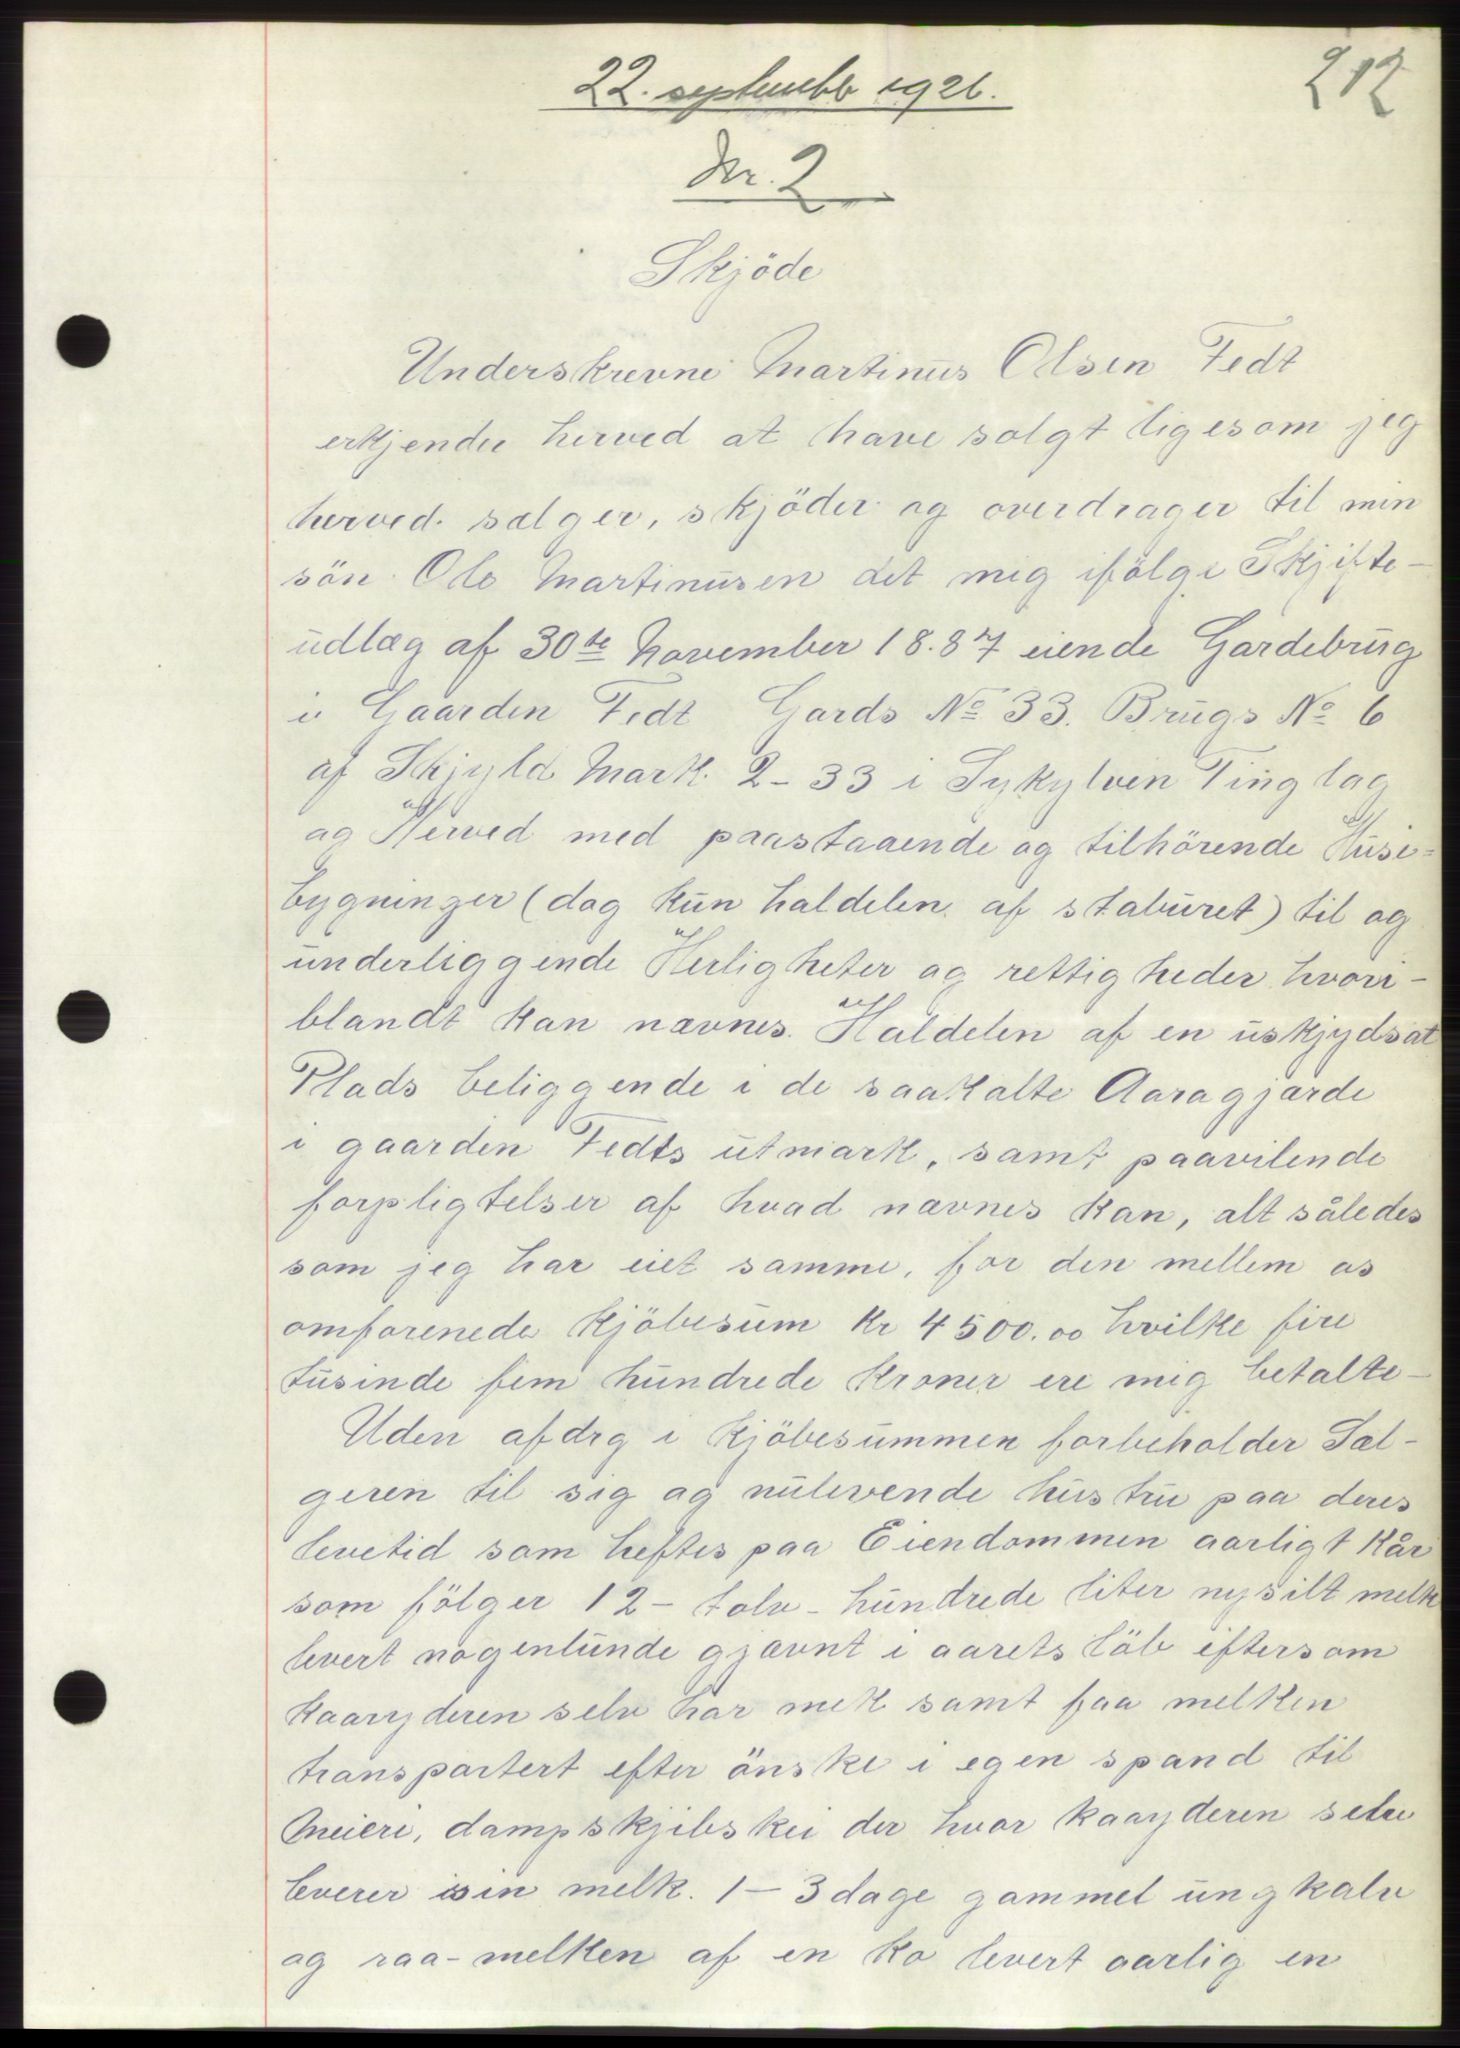 22. septembb 1926.
212
Nr. 2
Skjöde
Underskrevne Martinus Olsen Fedt
erkjender herved at have solgt ligesom jeg
herved sælger, skjöder og overdrager til min
sön Ole Martinusen det mig ifölge Skjifte-
udlæg af 30te November 18.87 eiende Gardebrug
i Gaarden Fedt Gards No 33. Brugs No 6
af Skjyld Mark. 2-33 i Sykylven Tinglag
og Herved med paastaaende og tilhörende Huse=
bygninger (dog kun haldelen af staburet) til og
underliggende Herligheter og rettigheder hvori-
blandt kan nævnes. Haldelen af en uskjydsat
Plads beliggende i de saakalte Aaragjærde
i gaarden Fedts utmark, samt paavilende
forpligtelser af hvad nævnes kan, alt således
som jeg har eiet samme, for den mellem os
omforenede kjöbesum Kr 4500.00 hvilke fire
tusinde fem hundrede kroner ere mig betalte-
Uden afdrg i kjöbesummen forbeholder Sæl-
geren til sig og nulevende hustru paa deres
levetid som heftes paa Eiendommen aarligt kår
som fölger 12- tolv- hundrede liter nysilt melk
levert nogenlunde gjævnt i aarets löb eftersom
kaaryderen selv har melk samt faa melken
transportert efter önske i egen spand til
Meieri, dampskjibskei der hvor kaaryderen selv
leverer isin melk. 1-3 dage gammel ungkalv
og raa-melken af en ko levert aarlig en